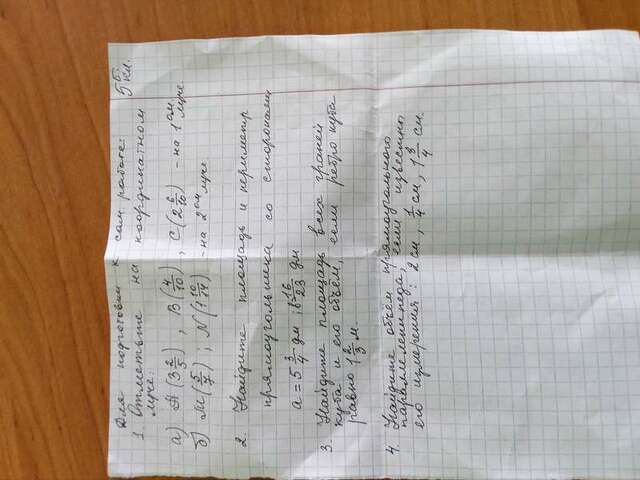 Для подготовки к сам. работе: 5 кл.
1. Отметьте на координатном
луче:
а) A(3 2/5), B(4/10), C(2 6/10) - на 1ом луче.
б) M(5/7); N(1 10/14) - на 2ом луче
2. Найдите площадь и периметр
прямоугольника со сторонами
a = 5 3/4 дм, b = 1 16/23 дм
3. Найдите площадь всех граней
куба и его объём, если ребро куба
равно 1 2/3 м
4. Найдите объём прямоугольного
параллелепипеда, если известны
его измерения: 2 см, 1/4 см, 1 3/4 см.